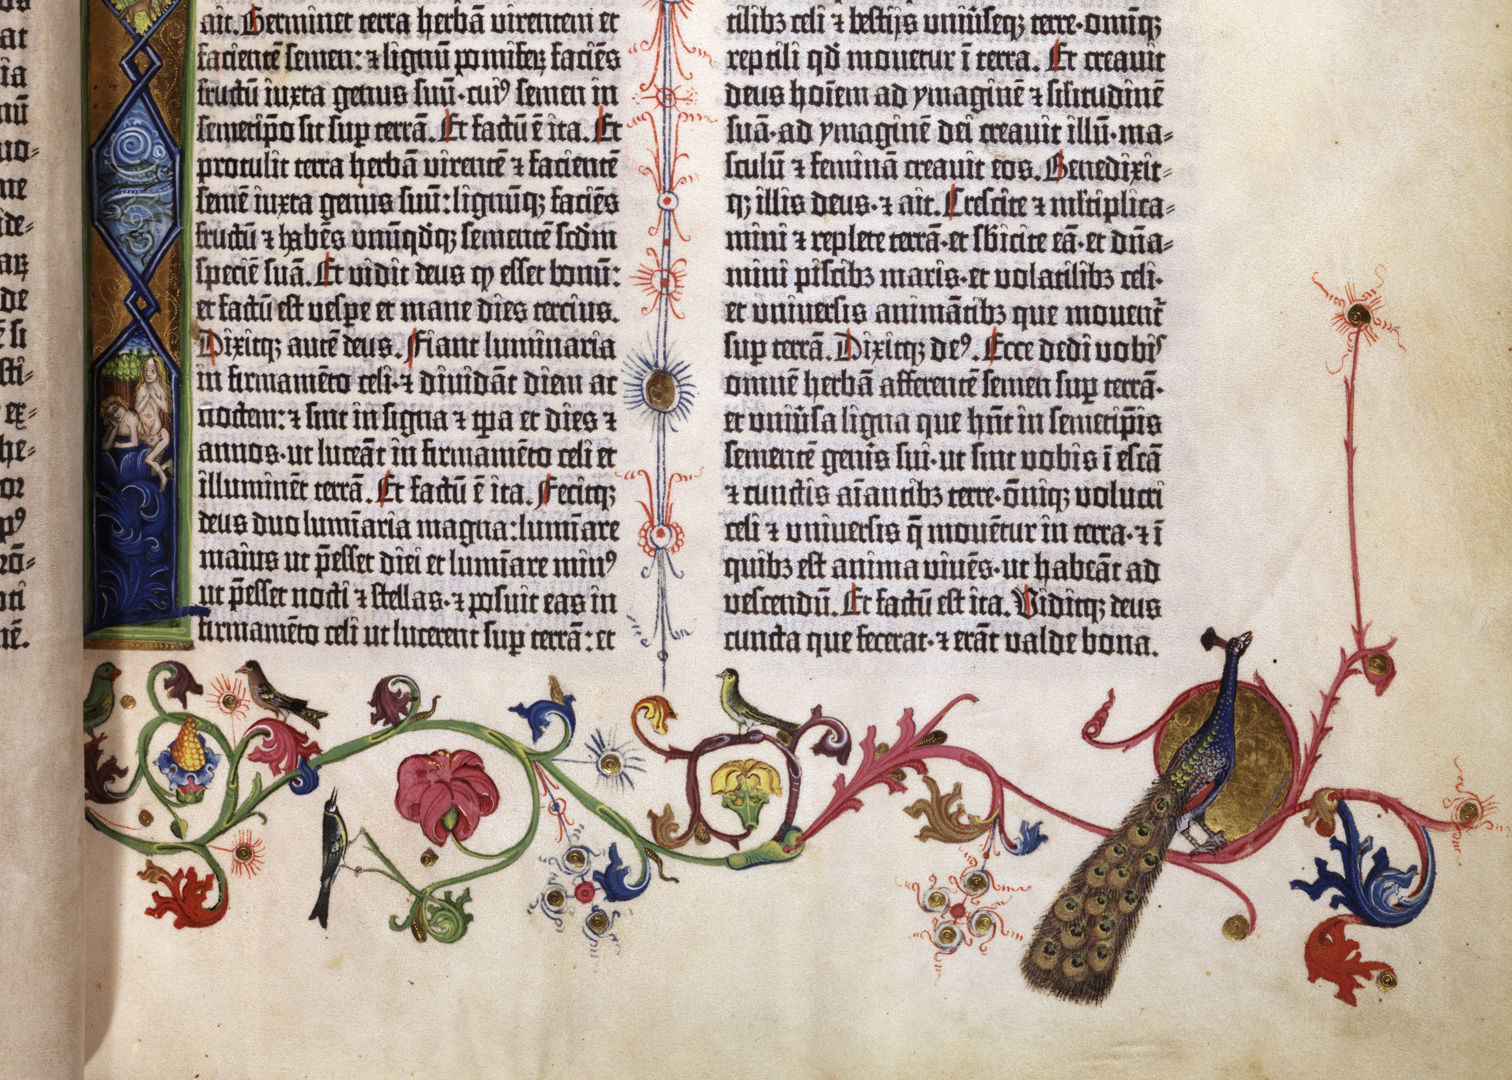 ait. Germinet terra herbā virentem et
facientē semen: ⁊ lignū pomiferꝫ faciēs
fructū iuxta genus suū · cuiꝰ semen in
semetip̄o sit sup terrā. Et factū ē ita. Et
protulit terra herbā virentē ⁊ facientē
semē iuxta genus suū: lignūqꝫ faciēs
fructū ⁊ habēs unūqdqꝫ sementē scdm
speciē suā. Et vidit deus ꝙ esset bonū:
et factū est vespe et mane dies tercius.
Dixitqꝫ autē deus. Fiant luminaria
in firmamēto celi · ⁊ dividāt diem ac
noctem: ⁊ sint in signa ⁊ tp̄a et dies ⁊
annos · ut luceāt in firmamēto celi et
illuminēt terrā. Et factū ē ita. Fecitqꝫ
deus duo lumīaria magna: lumīare
maius ut p̄esset diei et lumīare minꝰ
ut p̄esset nocti ⁊ stellas · ⁊ posuit eas in
firmamēto celi ut lucerent sup terrā: et
tilibꝫ celi ⁊ bestijs univ̄seqꝫ terre · omīqꝫ
reptili qd̄ movetur ī terra. Et creavit
deus hoīem ad ymaginē ⁊ sil̄itudinē
suā · ad ymaginē dei creavit illū · ma=
sculū ⁊ feminā creavit eos. Benedixit=
qꝫ illis deus · ⁊ ait. Crescite ⁊ ml̄tiplica=
mini ⁊ replete terrā · et sb̄icite eā · et dn̄a=
mini piscibꝫ maris · et volatilibꝫ celi ·
et universis animātibꝫ que movent̄
sup terrā. Dixitqꝫ deꝰ. Ecce dedi vobis
omnē herbā afferentē semen sup terrā ·
et univ̄sa ligna que hn̄t in semetip̄is
sementē genis sui · ut sint vobis ī escā
⁊ cunctis aīantibꝫ terre · ōniqꝫ volucri
celi ⁊ universis q̄ movētur in terra · ⁊ ī
quibꝫ est anima vivēs · ut habeāt ad
vescendū. Et factū est ita. Viditqꝫ deus
cuncta que fecerat · ⁊ erāt valde bona.